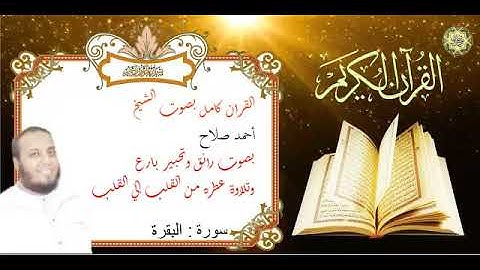 القرآن الكريم
القران كامل بصوت الشيخ
أحمد صلاح
بصوت رائق وتحبير بارع
وتلاوة عطره من القلب الي القلب
سورة : البقرة